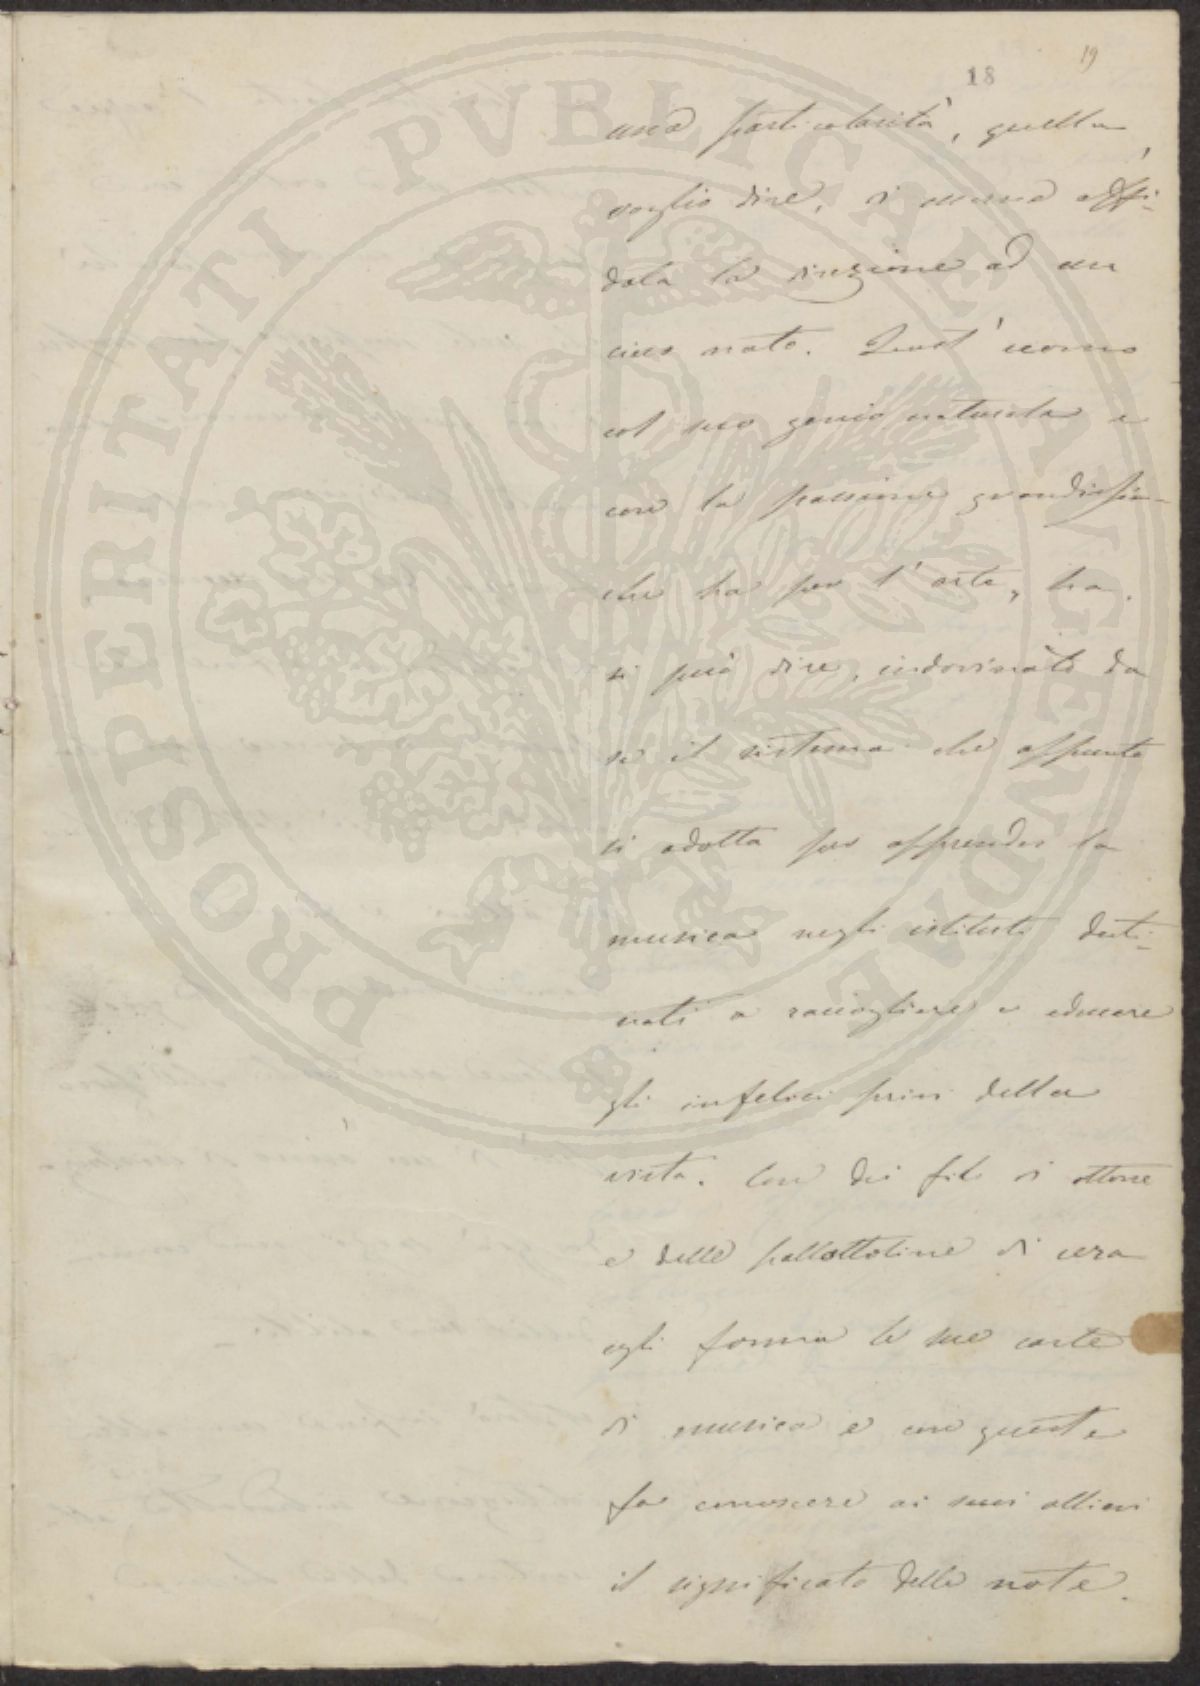 19
18
una particolarità, quella,
voglio dire, di essere affi-
data la direzione ad un
cieco nato. Quest'uomo
col suo genio naturale e
con la passione grandissima
che ha per l'arte, ha,
si può dire, indovinato da
se il sistema che appunto
si adotta per apprender la
musica negli istituti desti-
nati a raccogliere e educare
gli infelici privi della
vista. Con dei fili di ottone
e delle pallottoline di cera
egli forma le sue carte
di musica e con queste
fa conoscere ai suoi allievi
il significato delle note.
PROSPERITATI PVBLICAE AVGENDAE